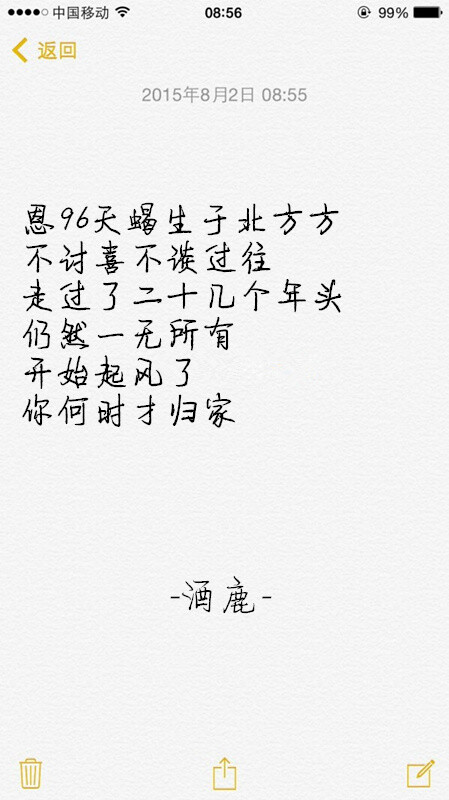 中国移动 08:56 99%
返回
2015年8月2日 08:55
恩96天蝎生于北方方
不讨喜不谈过往
走过了二十几个年头
仍然一无所有
开始起风了
你何时才归家
-酒鹿-